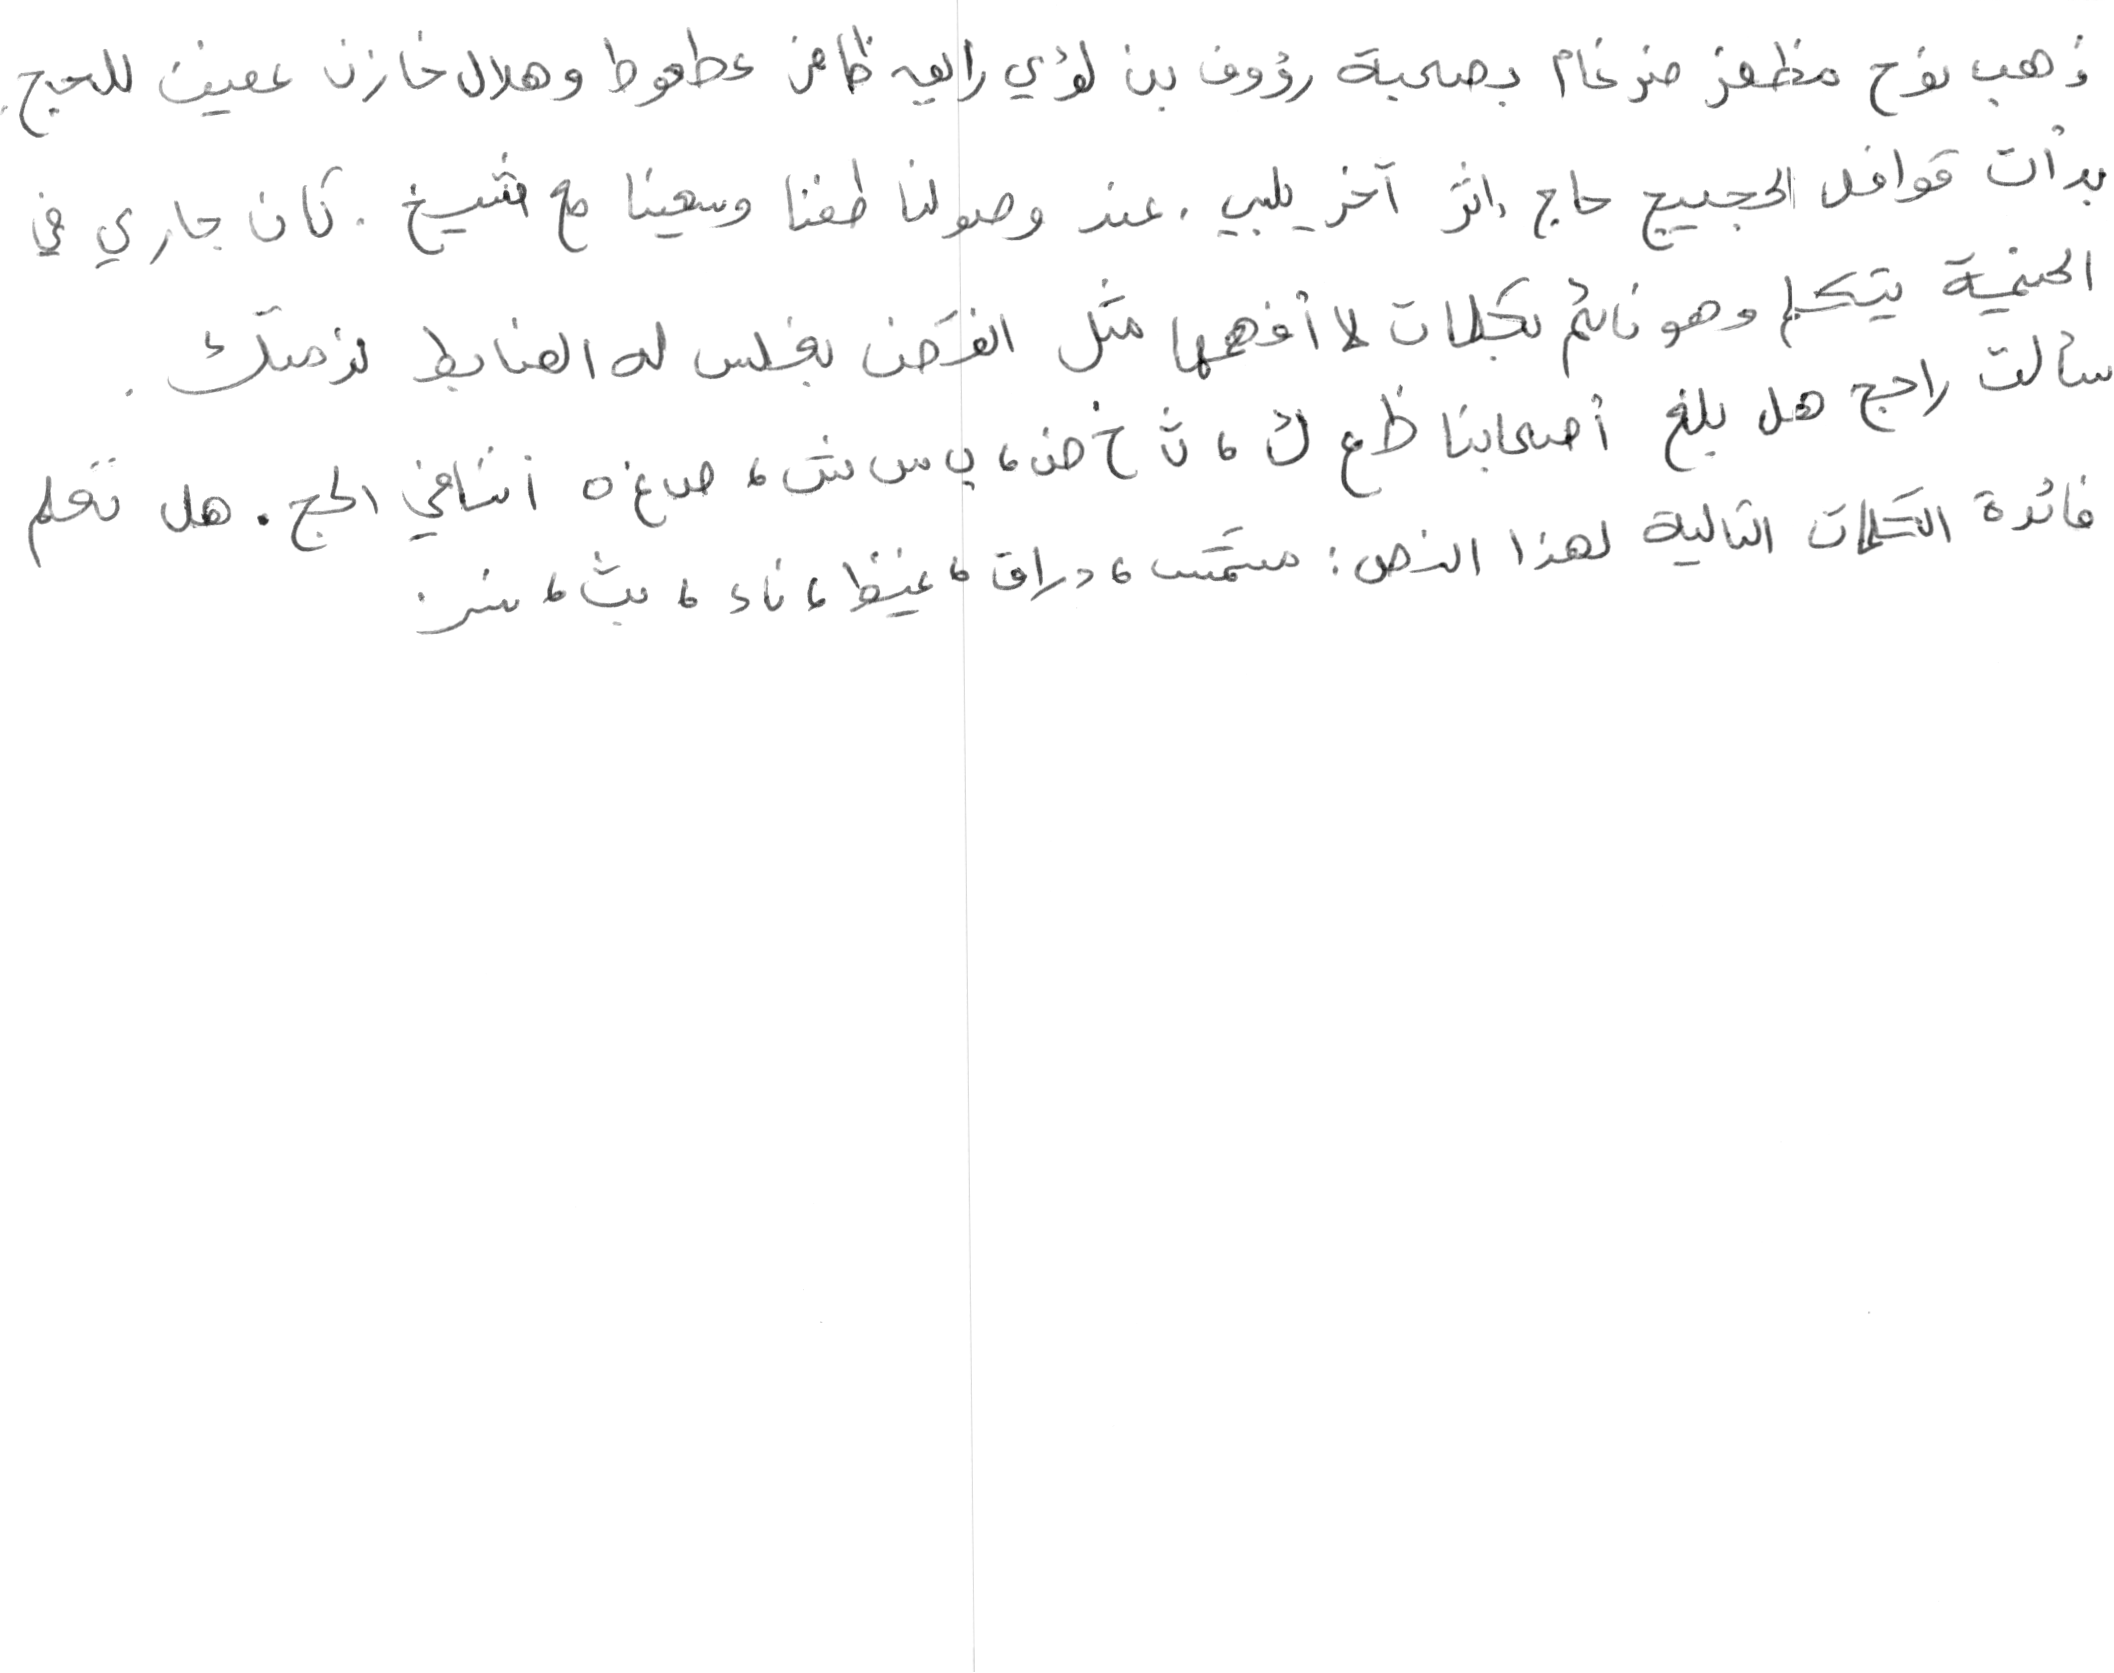 ذهب نوح مظفر ضرغام بصحبة رؤوف بن لؤي راجيه ظافر عطعوط وهلال خازن عفيف للحج.
بدأت قوافل الحجيج حاج إثر آخر يلبي. عند وصولنا طفنا وسعينا مع شيخ. كان جاري في
الخيمة يتكلم وهو نائم بكلمات لا أفهمها مثل الغضن بغلس له الضابط لزمتك.
سألت راجح هل بلغ أصحابنا ظ ع ك، ث خ ض، ب س ش، ص غ ه أننا في الحج. هل تعلم
فائدة الكلمات التالية لهذا النص: مشمش، دراق، غيظ، ناء، بث، شز